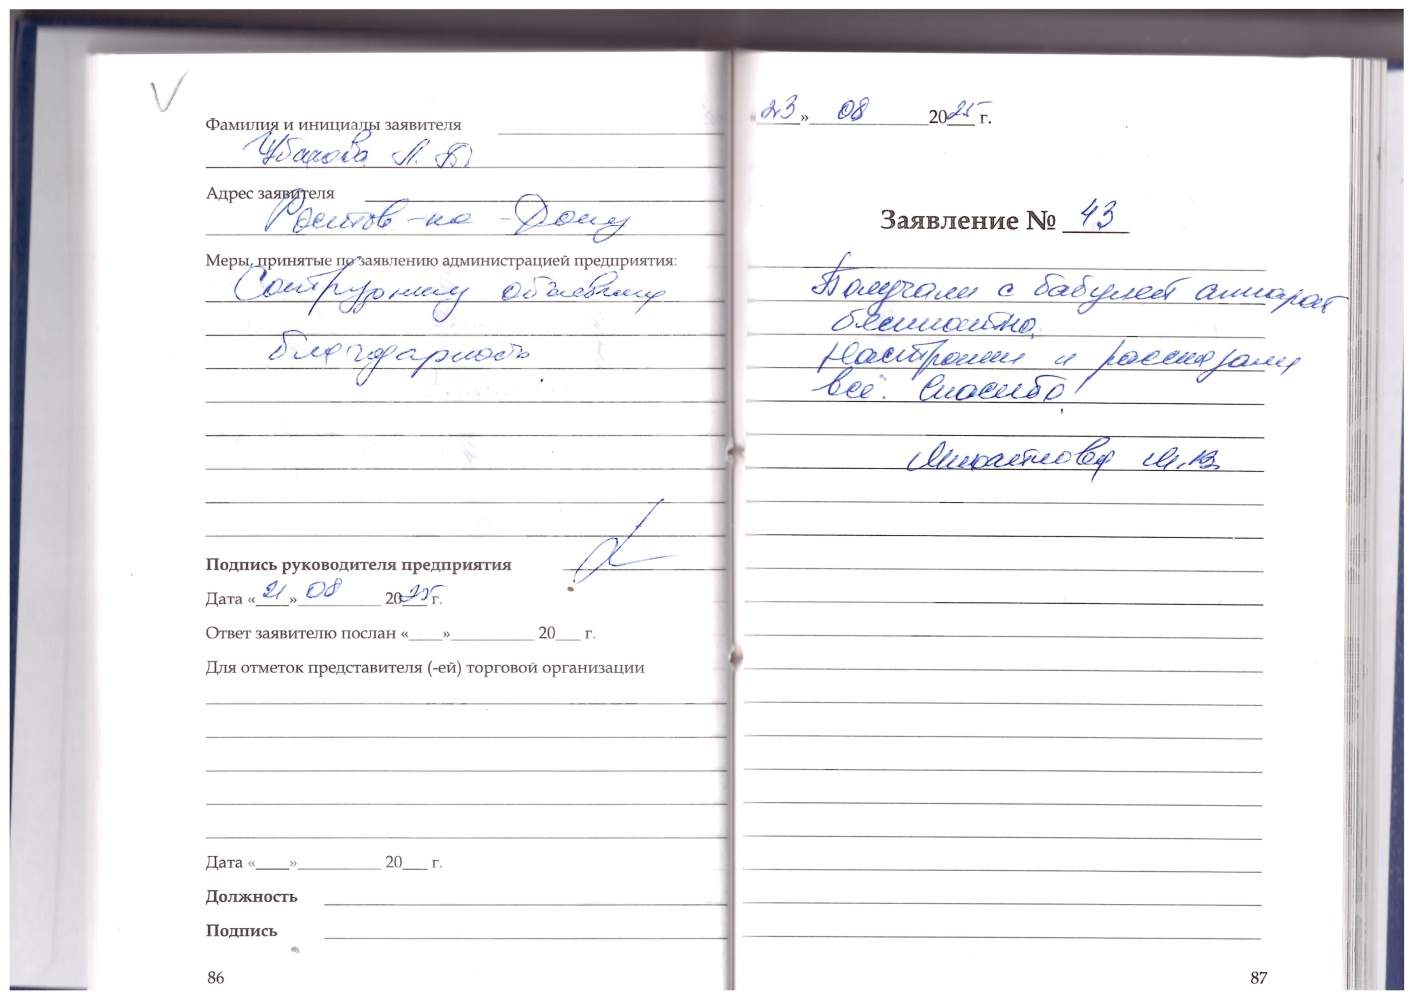 Фамилия и инициалы заявителя
Л. Б.
Адрес заявителя
Ростов-на-Дону
Меры, принятые по заявлению администрацией предприятия:
Сотруднику объявлена
благодарность
Подпись руководителя предприятия
Дата «21» 08 2025 г.
Ответ заявителю послан «____»__________ 20___ г.
Для отметок представителя (-ей) торговой организации
Дата «____»__________ 20___ г.
Должность
Подпись
86
«23» 08 2025 г.
Заявление № 43
Получали с бабулей аппарат
бесплатно.
Настроили и рассказали
всё. Спасибо!
87